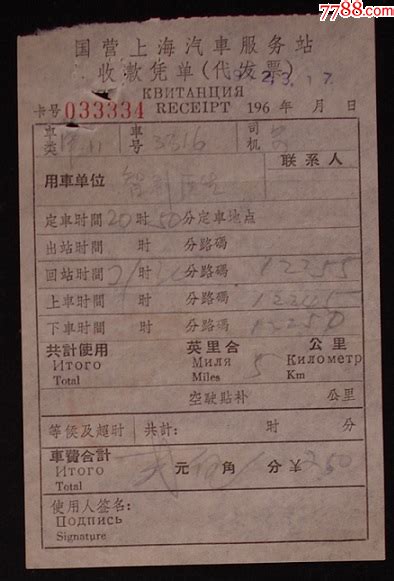 7788.com
国营上海汽車服务站
收款凭单(代发票)
КВИТАНЦИЯ
卡号 033334 RECEIPT 196 年 月 日
車类 車号 3316 司机
联系人
用車单位
定車时間 20 时 50 分定車地点
出站时間 时 分路碼
回站时間 时 分路碼 12255
上車时間 时 分路碼 12245
下車时間 时 分路碼 12250
共計使用 英里合 公里
Итого Миля 5 Километр
Total Miles Km
空驶貼补 公里
等候及超时 共計: 时 分
車費合計 元 角 分 ¥ 2.50
Итого
Total
使用人签名:
Подпись
Signature